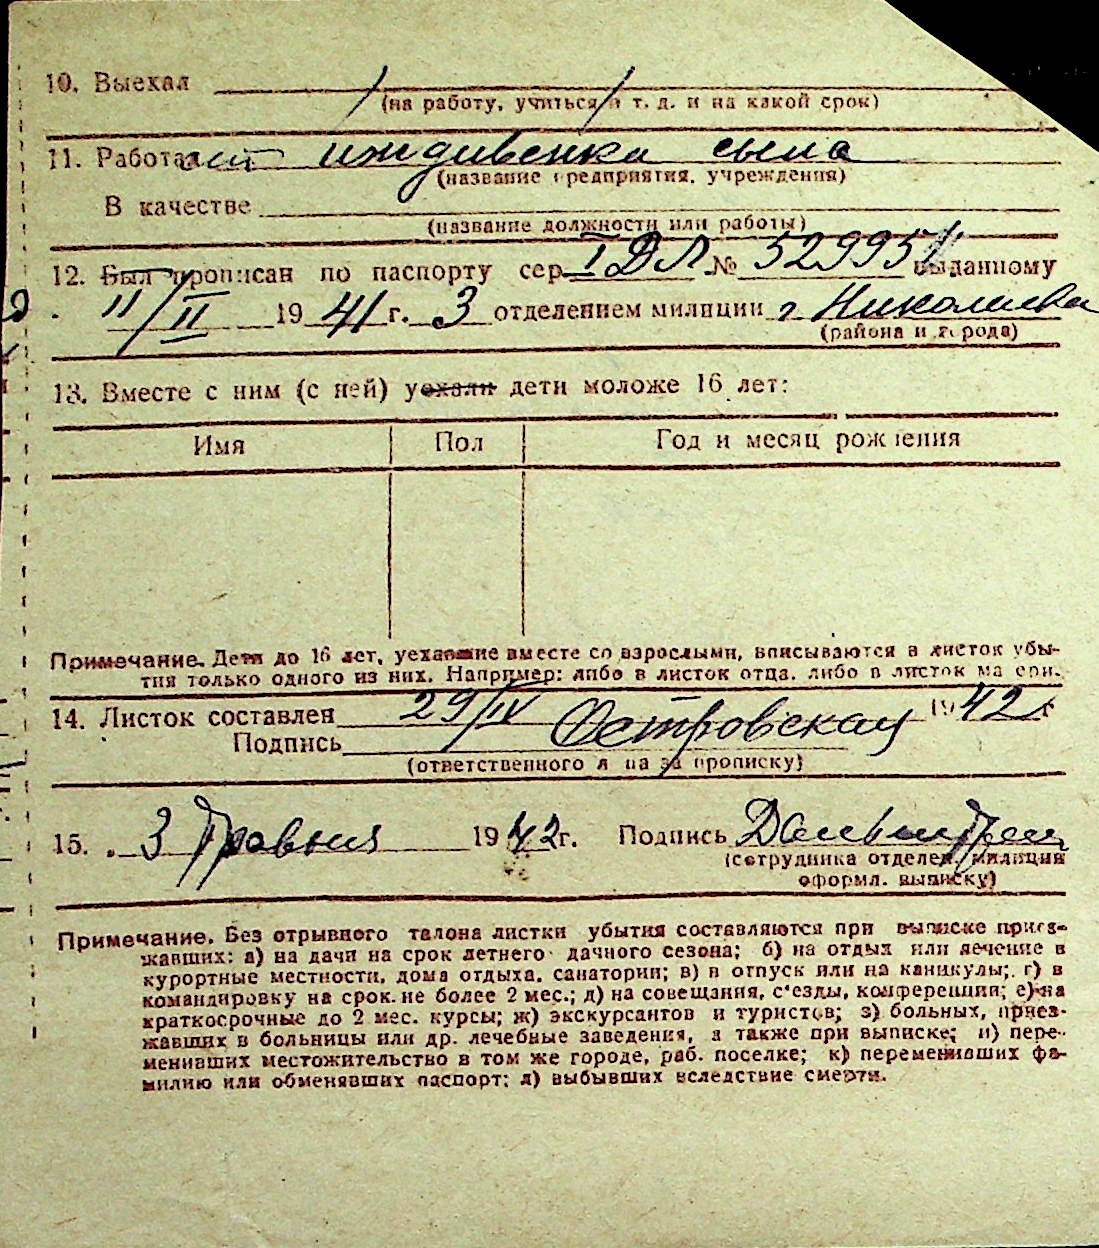 10. Выехал
(на работу, учиться и т. д. и на какой срок)
11. Работает иждивенка сына
(название предприятия, учреждения)
В качестве
(название должности или работы)
12. Был прописан по паспорту сер. I ДЛ № 529951 выданному
11/II 1941 г. 3 отделением милиции г Николаева
(района и города)
13. Вместе с ним (с ней) уехали дети моложе 16 лет:
Имя Пол Год и месяц рождения
Примечание. Дети до 16 лет, уехавшие вместе со взрослыми, вписываются в листок убы-
тия только одного из них. Например: либо в листок отца, либо в листок матери.
14. Листок составлен 29/IV 1942 г
Подпись Островская
(ответственного лица за прописку)
15. 3 Травня 1942 г. Подпись
(сотрудника отделен. милиции
оформл. выписку)
Примечание. Без отрывного талона листки убытия составляются при выписке приез-
жавших: а) на дачи на срок летнего дачного сезона; б) на отдых или лечение в
курортные местности, дома отдыха, санатории; в) в отпуск или на каникулы; г) в
командировку на срок не более 2 мес.; д) на совещания, с'езды, конференции; е) на
краткосрочные до 2 мес. курсы; ж) экскурсантов и туристов; з) больных, приез-
жавших в больницы или др. лечебные заведения, а также при выписке; и) пере-
менивших местожительство в том же городе, раб. поселке; к) переменивших фа-
милию или обменявших паспорт; л) выбывших вследствие смерти.